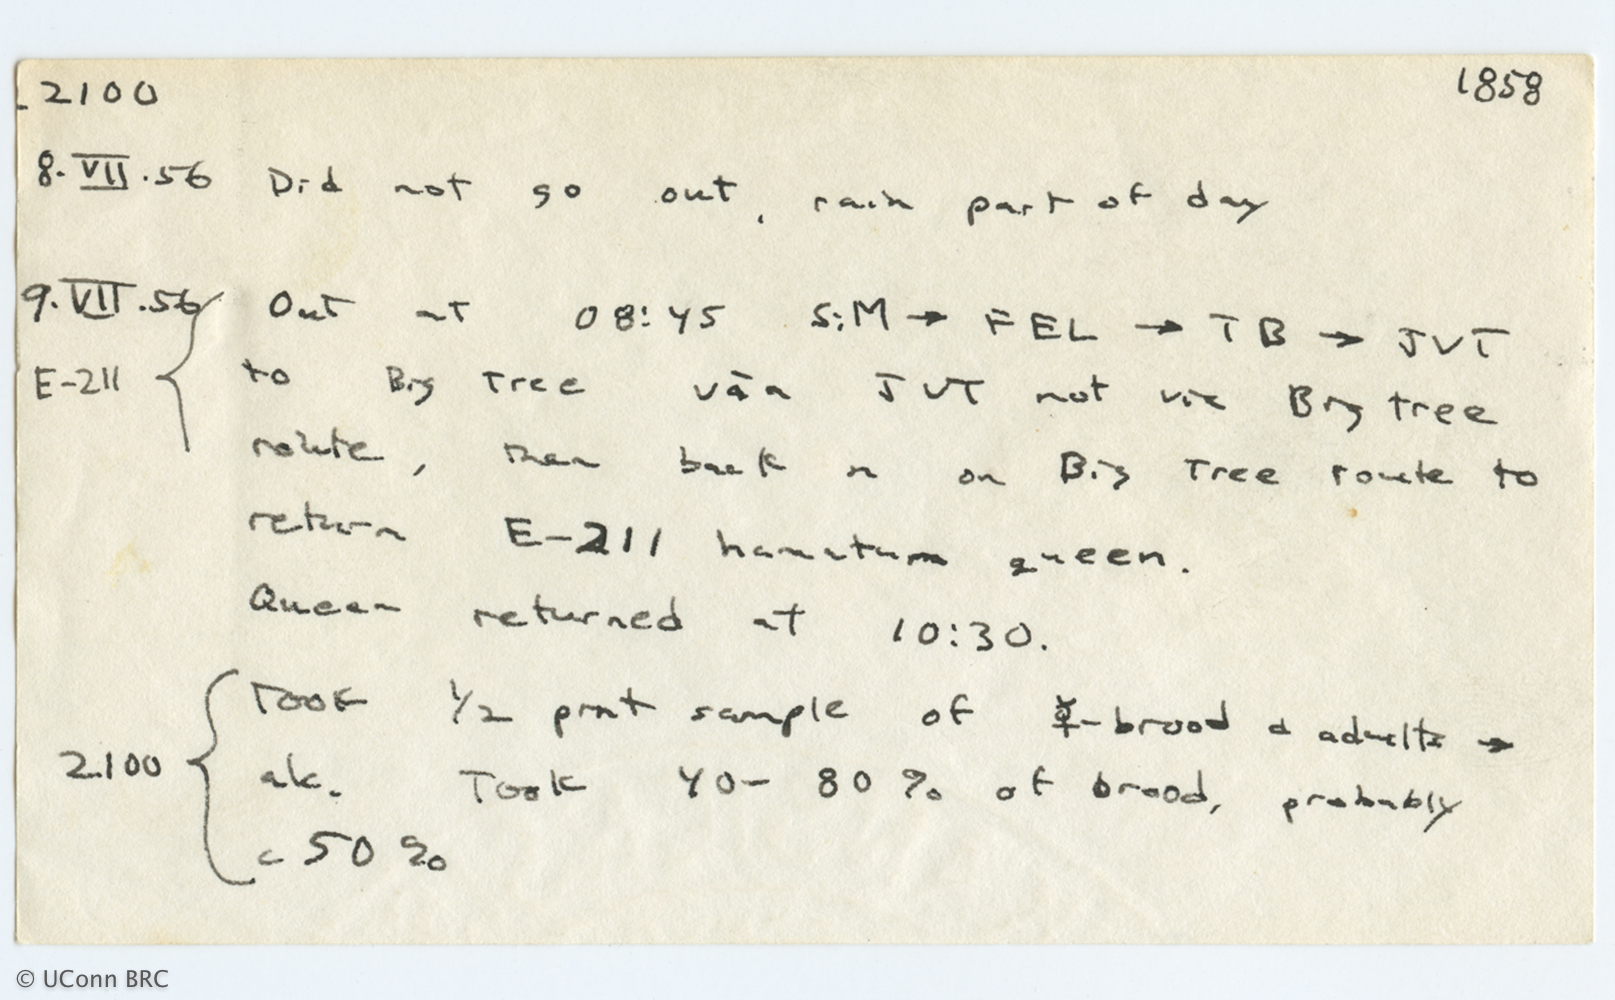 2100 1858
8.VII.56 Did not go out, rain part of day
9.VII.56 Out at 08:45 S:M → FEL → TB → JVT
E-211 to Big Tree via JVT not via Big tree
route, then back on Big Tree route to
return E-211 hamatum queen.
Queen returned at 10:30.
Took 1/2 pint sample of ☿-brood & adults →
2100 alc. Took 40-80% of brood, probably
c 50%
© UConn BRC